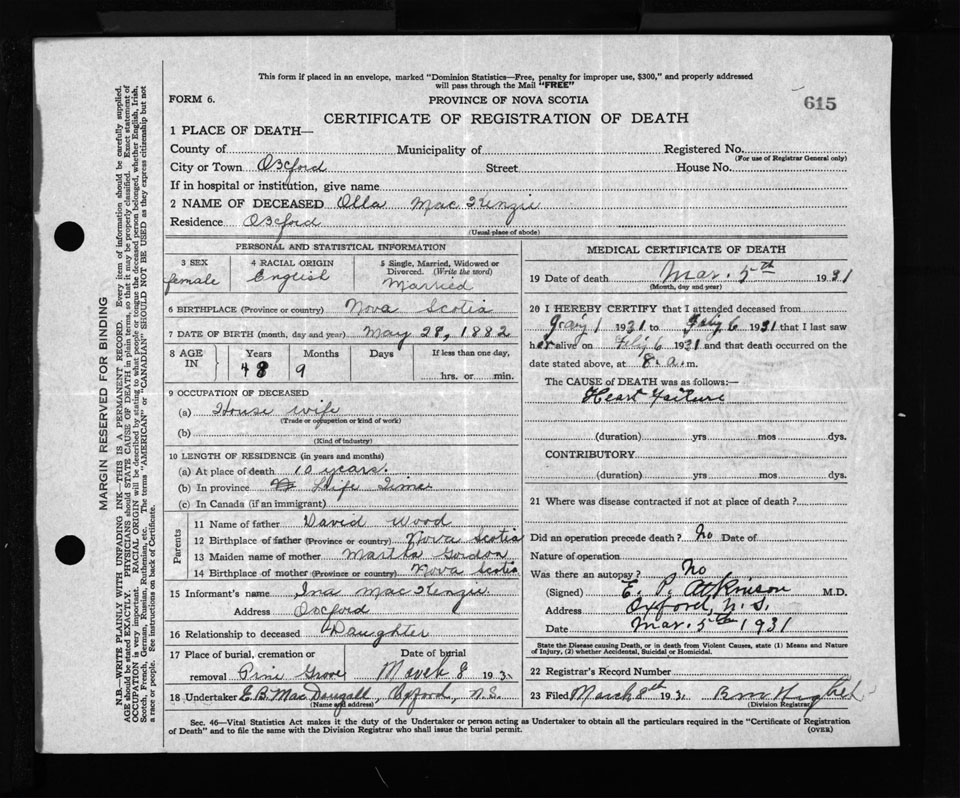 This form if placed in an envelope, marked "Dominion Statistics—Free, penalty for improper use, $300," and properly addressed
will pass through the Mail "FREE"
FORM 6.
PROVINCE OF NOVA SCOTIA
615
CERTIFICATE OF REGISTRATION OF DEATH
1 PLACE OF DEATH—
County of Municipality of Registered No.
(For use of Registrar General only)
City or Town Oxford Street House No.
If in hospital or institution, give name
2 NAME OF DECEASED Olla MacKenzie
Residence Oxford
(Usual place of abode)
PERSONAL AND STATISTICAL INFORMATION
3 SEX
female
4 RACIAL ORIGIN
English
5 Single, Married, Widowed or
Divorced. (Write the word)
Married
6 BIRTHPLACE (Province or country) Nova Scotia
7 DATE OF BIRTH (month, day and year) May 28, 1882
8 AGE
IN
Years
48
Months
9
Days
If less than one day,
hrs. or min.
9 OCCUPATION OF DECEASED
(a) House wife
(Trade or occupation or kind of work)
(b)
(Kind of industry)
10 LENGTH OF RESIDENCE (in years and months)
(a) At place of death 10 years.
(b) In province Life Time
(c) In Canada (if an immigrant)
Parents
11 Name of father David Wood
12 Birthplace of father (Province or country) Nova Scotia
13 Maiden name of mother Martha Gordon
14 Birthplace of mother (Province or country) Nova Scotia
15 Informant's name Ina MacKenzie
Address Oxford
16 Relationship to deceased Daughter
17 Place of burial, cremation or
removal Pine Grove
Date of burial
March 8 193
18 Undertaker E B MacDougall, Oxford, N.S.
(Name and address)
MEDICAL CERTIFICATE OF DEATH
19 Date of death Mar. 5th 1931
(Month, day and year)
20 I HEREBY CERTIFY that I attended deceased from
1 1931 to 6 1931 that I last saw
her alive on 6 1931 and that death occurred on the
date stated above, at 8. a. m.
The CAUSE OF DEATH was as follows:—
Heart Failure
(duration) yrs mos dys.
CONTRIBUTORY
(duration) yrs mos dys.
21 Where was disease contracted if not at place of death?
Did an operation precede death? No Date of
Nature of operation
Was there an autopsy? No
(Signed) E. P. Atkinson M.D.
Address Oxford, N.S.
Date Mar. 5th 1931
State the Disease causing Death, or in death from Violent Causes, state (1) Means and Nature
of Injury, (2) whether Accidental, Suicidal or Homicidal.
22 Registrar's Record Number
23 Filed March 8th 193
(Division Registrar)
Sec. 46—Vital Statistics Act makes it the duty of the Undertaker or person acting as Undertaker to obtain all the particulars required in the "Certificate of Registration
of Death" and to file the same with the Division Registrar who shall issue the burial permit.
(OVER)
MARGIN RESERVED FOR BINDING
N.B.—WRITE PLAINLY WITH UNFADING INK—THIS IS A PERMANENT RECORD. Every item of information should be carefully supplied.
AGE should be stated EXACTLY. PHYSICIANS should STATE CAUSE OF DEATH in plain terms, so that it may be properly classified. Exact statement of
OCCUPATION is very important. RACIAL ORIGIN will be described by stating to what people or tongue the deceased person belonged, whether English, Irish,
Scotch, French, German, Russian, Ruthenian, etc. The terms "AMERICAN" or "CANADIAN" SHOULD NOT BE USED as they express citizenship but not
a race or people. See instructions on back of Certificate.